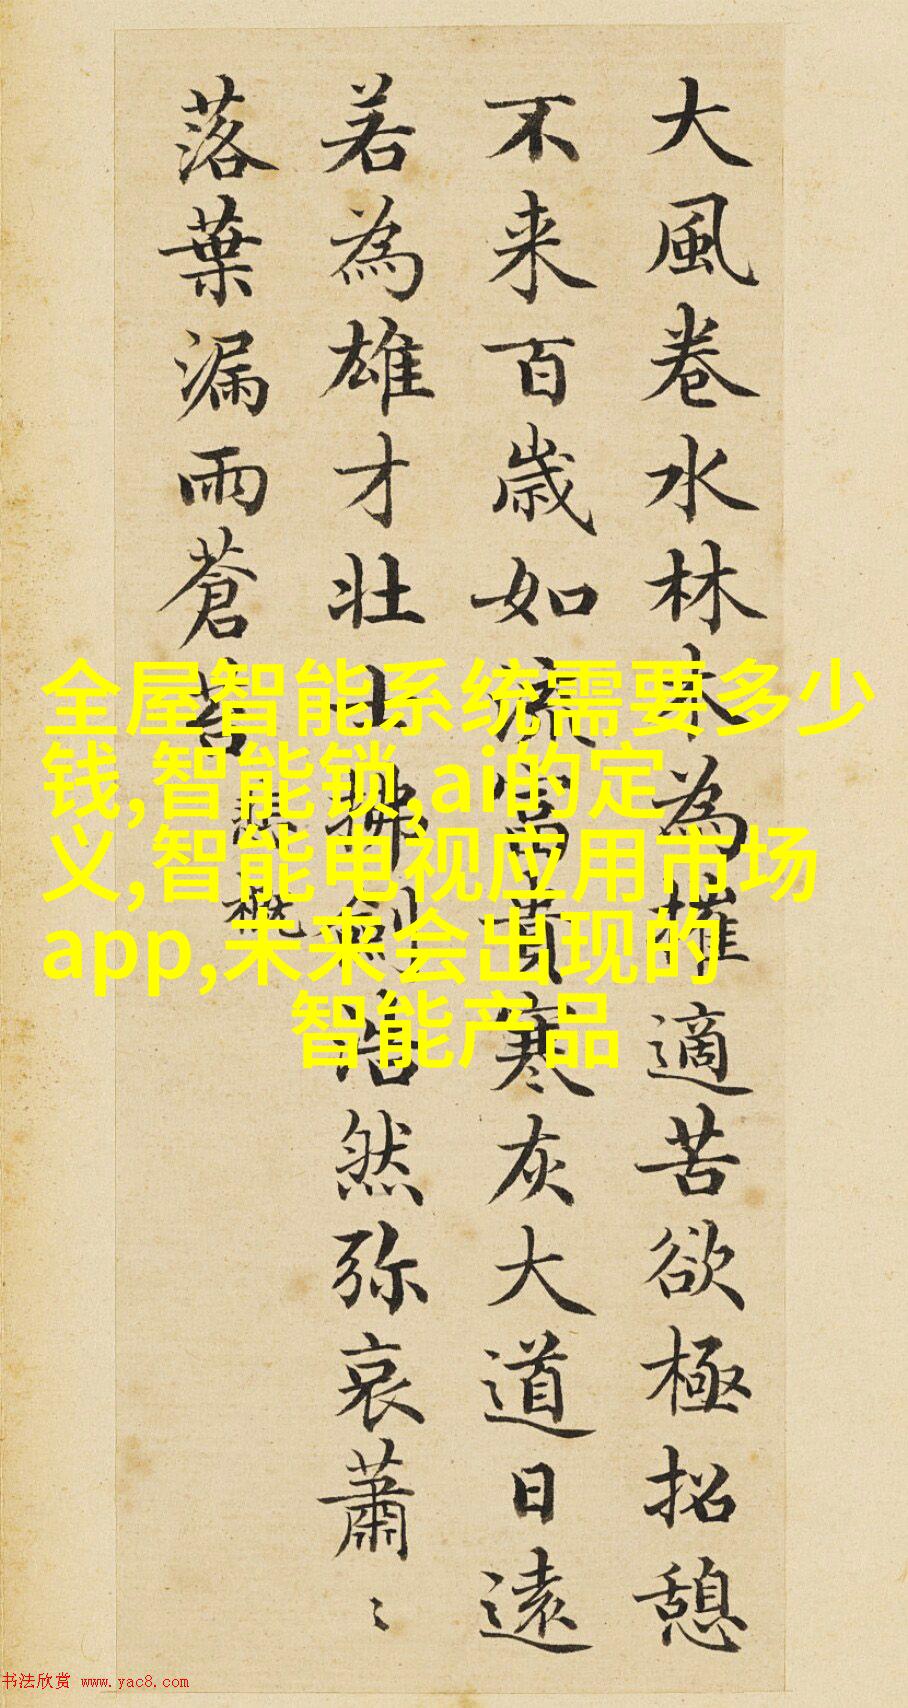 大風卷水林木為摧適苦欲極招憩
不来百歲如流富貴寒灰大道日遠
若為雄才壯士拂劍浩然弥哀蕭〻
落葉漏雨蒼苔
悲慨
全屋智能系统需要多少
钱,智能锁,ai的定
义,智能电视应用市场
app,未来会出现的
智能产品
书法欣赏 www.yac8.com